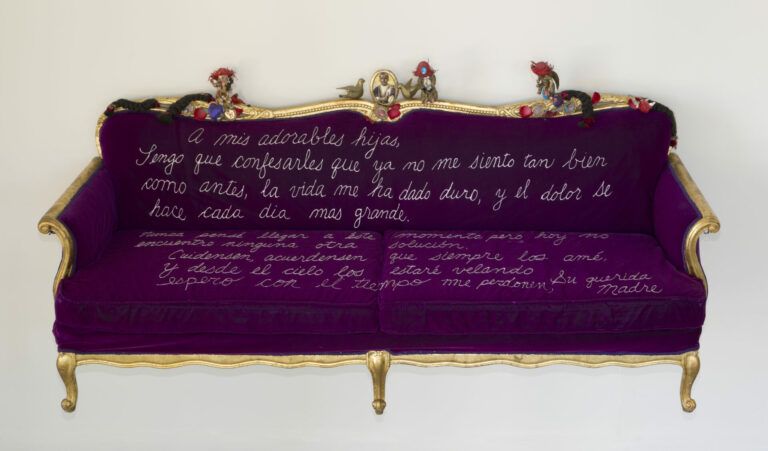 A mis adorables hijas,
Tengo que confesarles que ya no me siento tan bien
como antes, la vida me ha dado duro, y el dolor se
hace cada dia mas grande.
nunca pensé llegar a este momento pero hoy no
encuentro ninguna otra solución.
Cuidensen, acuerdensen que siempre los amé,
Y desde el cielo los estaré velando
espero con el tiempo me perdonen, Su querida
Madre